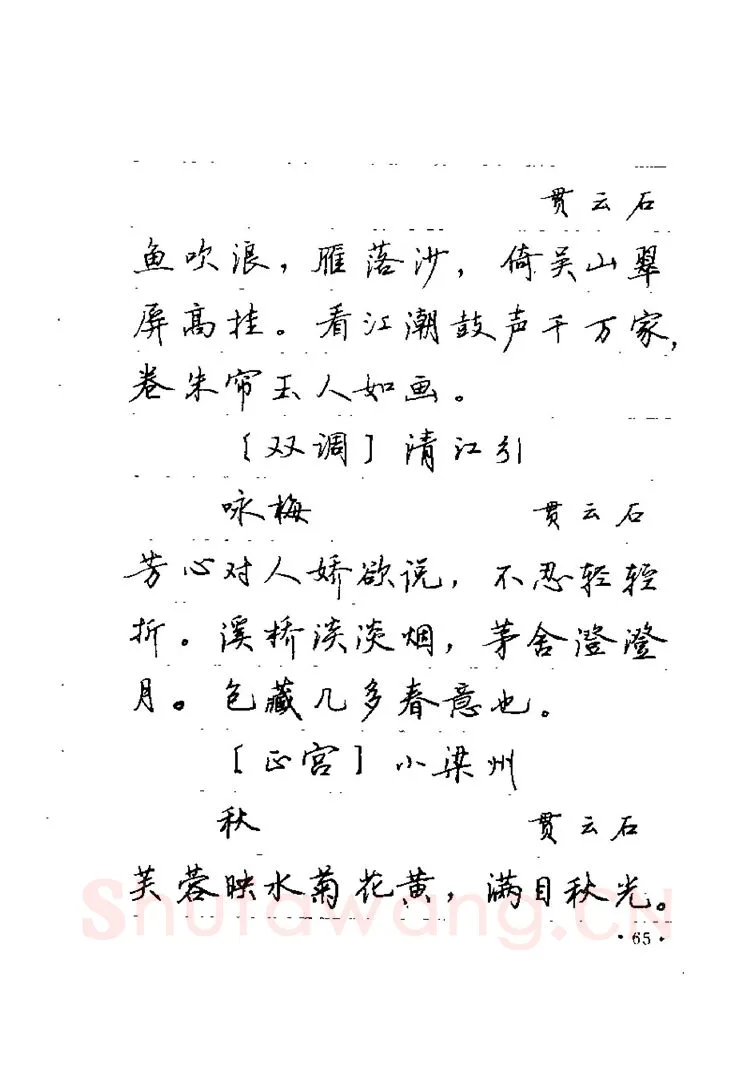 贯云石
鱼吹浪，雁落沙，倚吴山翠
屏高挂。看江潮鼓声千万家，
卷朱帘玉人如画。
［双调］清江引
咏梅 贯云石
芳心对人娇欲说，不忍轻轻
折。溪桥淡淡烟，茅舍澄澄
月。包藏几多春意也。
［正宫］小梁州
秋 贯云石
芙蓉映水菊花黄，满目秋光。
Shufawang.CN
·65·